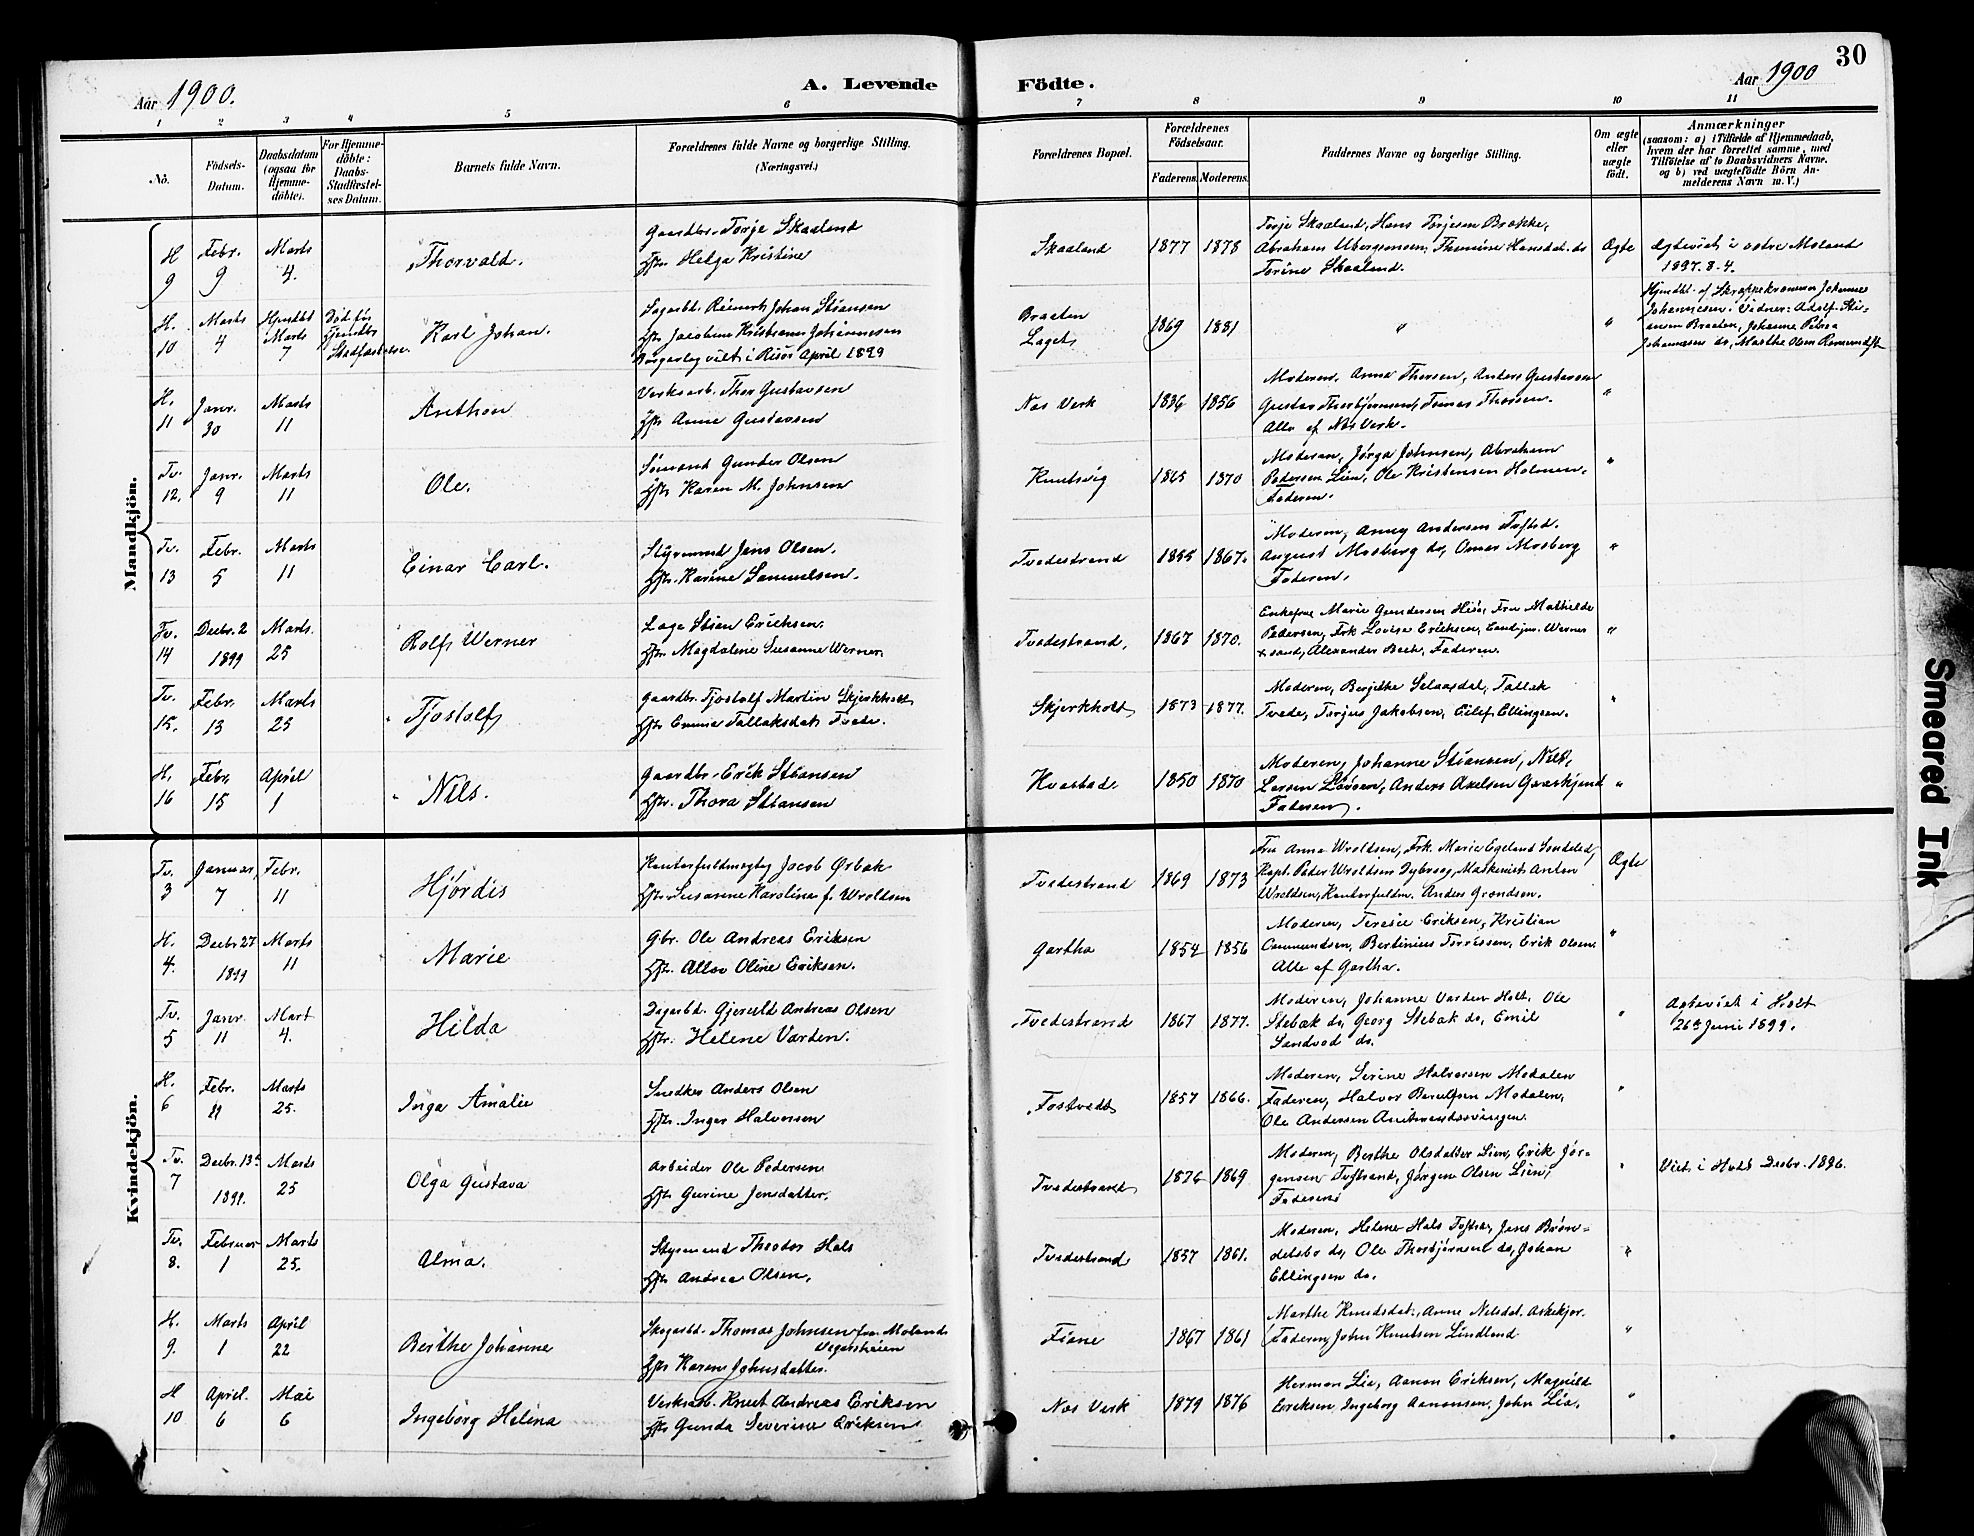 30
Aar 1900. A. Levende Födte. Aar 1900
1 2 3 4 5 6 7 8 9 10 11
No.
Födsels-
Datum.
Daabsdatum
(ogsaa for
Hjemme-
döbte).
For Hjemme-
döbte:
Daabs-
Stadfæstel-
ses Datum.
Barnets fulde Navn.
Forældrenes fulde Navne og borgerlige Stilling.
(Næringsvei.)
Forældrenes Bopæl.
Forældrenes
Födselsaar.
Faderens. Moderens.
Faddernes Navne og borgerlige Stilling.
Om ægte
eller
uægte
födt.
Anmærkninger
(saasom: a) i Tilfælde af Hjemmedaab,
hvem der har forrettet samme, med
Tilföielse af to Daabsvidners Navne,
og b) ved uægtefödte Börn An-
melderens Navn m. V.)
Mandkjön.
H 9 Febr. 9 Marts 4. Thorvald.
Gaardbr. Torje Skaaland
Hstr Helga Kristine
Skaaland 1877 1878
Torje Skaaland, Hans Torjesen Brække,
Abraham Thomine Hansdat. do
Torine Skaaland.
Ægte
Ægteviet i østre Moland
1897. 8-4.
H. 10 Marts 4 Hjmdbt Marts 7
Död før
Hjmdbs
Stadfæstelse.
Karl Johan.
Johan Stiansen
Hstr Jacobine Kristiane Johannesen
Borgerlig viet i Risør April 1899
Braaten
Laget
1869 1881 " "
Hjmdbt. af Johanne
Johannesen. Vidner: Adolf Sti-
ansen Braaten, Johanne Petrea
Johannesen do, Marthe Olsen
H. 11 Janr. 30 Marts 11 Anthon
Verksarb. Thor Gustavsen
Hstr Anne Gustavsen
Næs Verk 1856
Moderen, Anna Thorsen, Anders Gustavsen
Gustav Thorbjørnsen, Tomas Thorsen.
Alle af Næs Verk.
"
Tv. 12. Janr. 9 Marts 11 Ole.
Sømand Gunder Olsen
Hstr Karen M. Johnsen
Knutsvig 1865 1870
Moderen, Jørga Johnsen, Abraham
Pedersen Lien, Ole Kristensen Holmen.
Faderen.
"
Tv. 13 Febr. 5 Marts 11 Einar Carl.
Styrmand Jens Olsen.
Hstr. Karine Samuelsen.
Tvedestrand 1855 1867.
Moderen, Anny Andersen Tvstrd.
August Mosberg do, Omar Mosberg
Faderen.
"
Tv. 14 Decbr. 2 1899 Marts. 25 Rolf Werner
Læge Stian Eriksen.
Hstr. Magdalene Susanne Werner.
Tvedestrand, 1867 1870.
Enkefrue Marie Gundersen Fru Mathilde
Pedersen, Frk Lovise Eriksen, Werner
Alexander Faderen.
"
Tv. 15. Febr. 13 Marts 25 Tjostolf
Gaardbr. Tjostolf Martin Skjerkholt
Hstr Emma Tallaksdat. Tvede.
Skjerkholt 1873 1877.
Moderen, Bergithe Selaasdal, Tallak
Tvede, Torjus Jakobsen, Eilef Ellingsen.
"
H. 16 Febr. 15 April 1 Nils.
Gaardbr. Erik Stiansen
Hstr. Thora Stiansen
Hvastad. 1850 1870
Moderen, Johanne Stiansen, Nils,
Larsen Løvaas, Anders Axelsen
Faderen.
"
Kvindekjön.
Tv. 3 Januar, 7 Febr. 11 Hjördis
Kontorfuldmægtig Jacob Ørbæk
Hstr. Susanne Karoline f. Wroldsen
Tvedestrand 1869 1873
Fru Anna Wroldsen, Frk. Marie Egeland Søndeled,
Kapt. Peder Wroldsen Dybvaag, Maskinist Anton
Wroldsen, Kontorfuldm. Anders Grondsen.
Ægte
H. 4. Decbr 27 1899 Marts 11 Marie
Gbr. Ole Andreas Eriksen
Hstr. Oline Eriksen.
Gartha 1854 1856
Moderen, Teresie Eriksen, Kristian
Bertinius Torrissen, Erik Olsen.
Alle af Gartha.
"
Tv. 5 Janr. 11 Mart 4. Hilda
Dagarbd. Gjeruld Andreas Olsen
Hstr. Helene Varden.
Tvedestrand 1867 1877.
Moderen, Johanne Varden Holt. Ole
Stebæk do, Georg Stebæk do, Emil
Sandved do.
"
Ægteviet i Holt
26de Juni 1899.
H. 6 Febr. 11 Marts 25. Inga Amalie
Snedker Anders Olsen
Hstr. Inger Halvorsen
Fostvedt 1857 1866.
Moderen, Serine Halvorsen Modalen
Faderen, Halvor Modalen,
Ole Andersen
"
Tv. 7 Decbr. 13de 1899. Marts 25 Olga Gustava
Arbeider Ole Pedersen
Hstr. Gurine Jensdatter.
Tvedestrand 1876 1869
Moderen, Berthe Olsdatter Lien, Erik Jør-
gensen Tvstrand, Jørgen Olsen Lien,
Faderen
"
Viet i Holt Decbr. 1896.
Tv. 8. Februar 1 Marts 25. Alma.
Styrmand Theodor Hals
Hstr Andrea Olsen.
Tvedestrand 1857 1861.
Moderen, Helene Hals Tvstra, Jens Brøn-
delsbo do, Ole Thorbjørnsen do, Johan
Ellingsen do.
"
H. 9. Marts 1 April 22 Berthe Johanne
Skogarbd. Thomas Johnsen fra Moland
Vegarsheien
Hstr Karen Johnsdatter.
Fiane 1867 1861
Marthe Knudsdat., Anne Nilsdat.
Faderen, John Knutsen Lindland
"
H 10 April. 6 Mai 6 Ingeborg Helena
Verksarb. Knut Andreas Eriksen
Hstr Gunda Severine Eriksen.
Næs Verk 1879 1876
Herman Lia, Aanon Eriksen, Magnild
Eriksen, Ingeborg Aanonsen, John Lia.
"
Smeared Ink